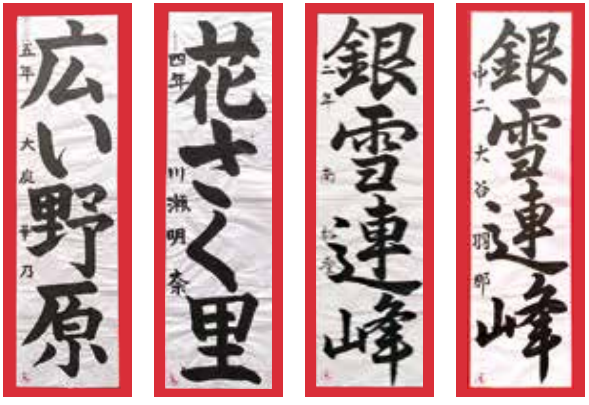 広い野原
五年 大庭
花さく里
四年 川瀬明奈
銀雪連峰
二年 南
銀雪連峰
中二 大谷羽那